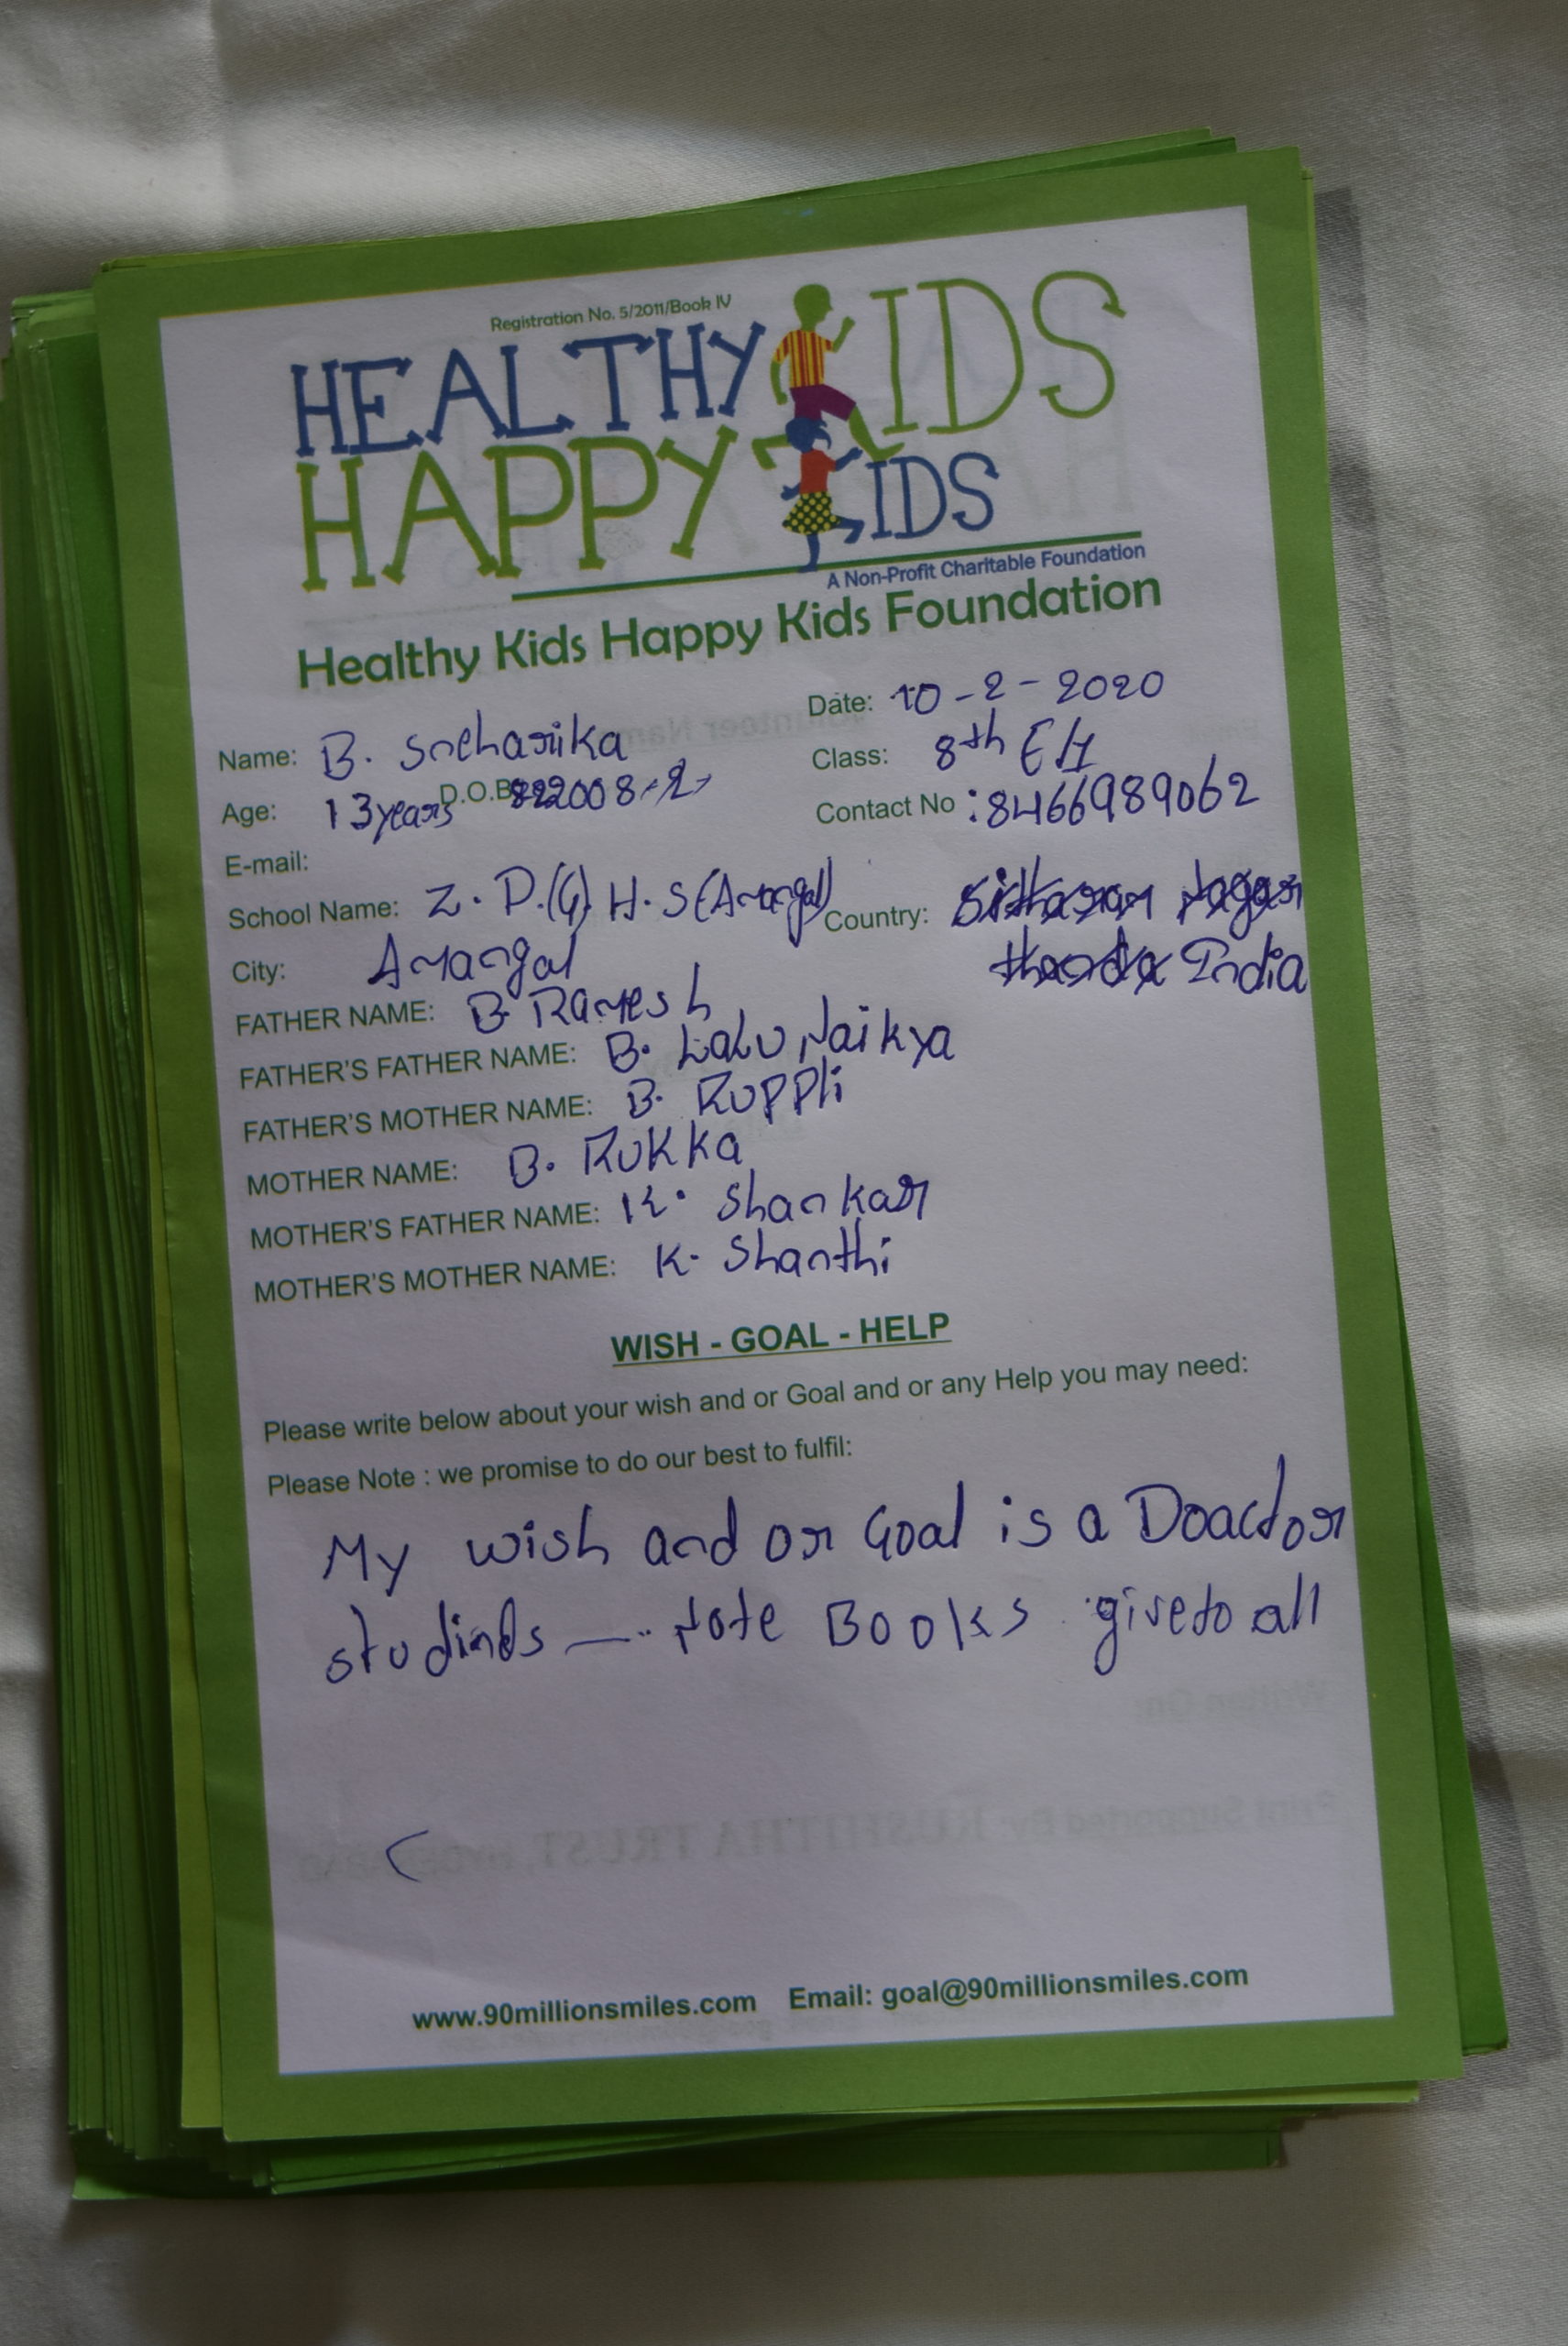 Registration No. 5/2011/Book IV
HEALTHY KIDS
HAPPY KIDS
A Non-Profit Charitable Foundation
Healthy Kids Happy Kids Foundation
Date: 10-2-2020
Name: B. Sneharika
Class: 8th E/M
Age: 13years D.O.B 2008-2-
Contact No : 8466989062
E-mail:
School Name: Z. P.(G). H. S (Amangal)
Country:
City: Amangal
India
FATHER NAME: B Ramesh
FATHER'S FATHER NAME: B. LaLu Naikya
FATHER'S MOTHER NAME: B. RUPPli
MOTHER NAME: B. RUKKa
MOTHER'S FATHER NAME: K. Shankar
MOTHER'S MOTHER NAME: K. Shanthi
WISH - GOAL - HELP
Please write below about your wish and or Goal and or any Help you may need:
Please Note : we promise to do our best to fulfil:
My wish and or Goal is a Doactor
studinds — Note Books give to all
www.90millionsmiles.com Email: goal@90millionsmiles.com